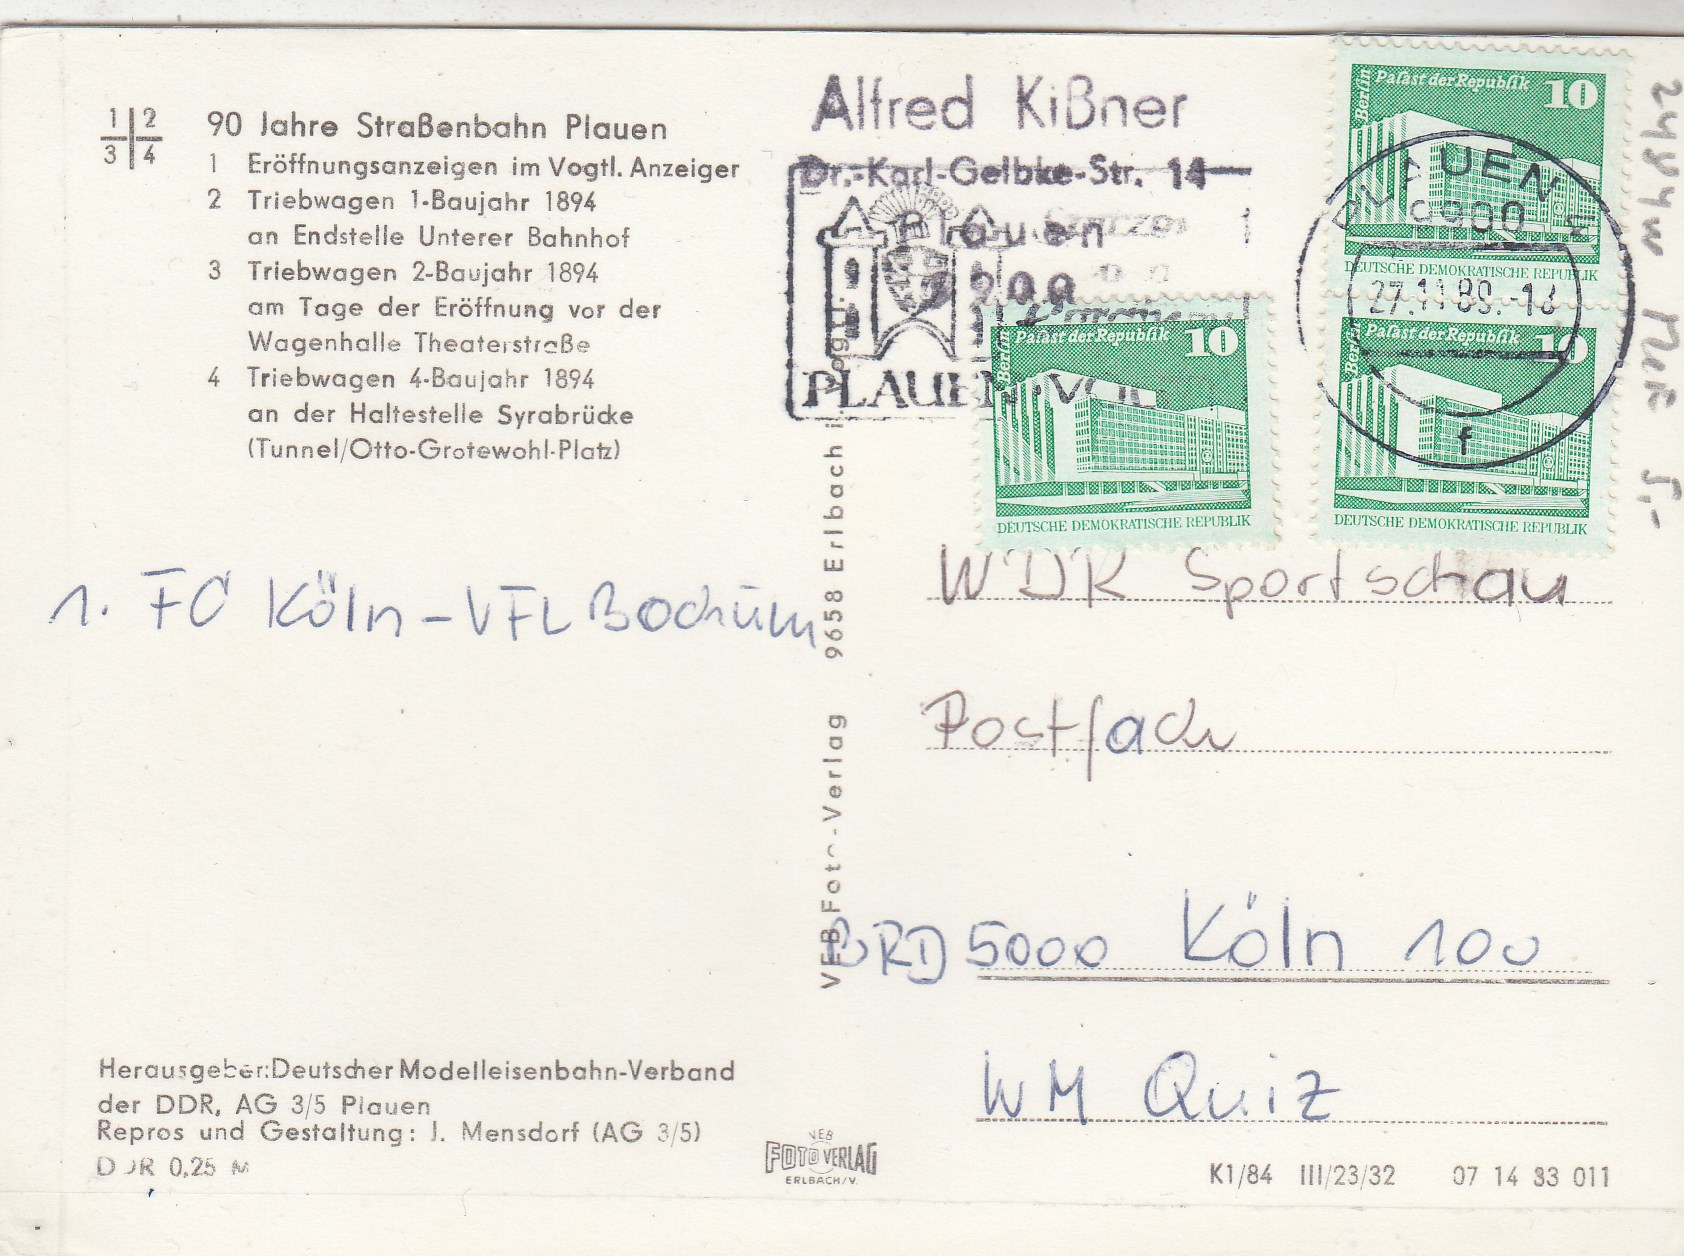 1 2
3 4
90 Jahre Straßenbahn Plauen
1 Eröffnungsanzeigen im Vogtl. Anzeiger
2 Triebwagen 1-Baujahr 1894
an Endstelle Unterer Bahnhof
3 Triebwagen 2-Baujahr 1894
am Tage der Eröffnung vor der
Wagenhalle Theaterstraße
4 Triebwagen 4-Baujahr 1894
an der Haltestelle Syrabrücke
(Tunnel/Otto-Grotewohl-Platz)
1. FC Köln - VFL Bochum
Herausgeber: Deutscher Modelleisenbahn-Verband
der DDR, AG 3/5 Plauen
Repros und Gestaltung: J. Mensdorf (AG 3/5)
DDR 0,25 M
VEB Foto-Verlag 9658 Erlbach i. Vogtl.
VEB
FOTO VERLAG
ERLBACH/V.
Alfred Kißner
Dr.-Karl-Gelbke-Str. 14
Plauen
9900
PLAUEN · VOG
Berlin
Palast der Republik
10
DEUTSCHE DEMOKRATISCHE REPUBLIK
Berlin
Palast der Republik
10
DEUTSCHE DEMOKRATISCHE REPUBLIK
Berlin
Palast der Republik
10
DEUTSCHE DEMOKRATISCHE REPUBLIK
PLAUEN
9900
27.11.89.-18
f
WDR Sportschau
Postfach
BRD 5000 Köln 100
WM Quiz
K1/84 III/23/32 07 14 83 011